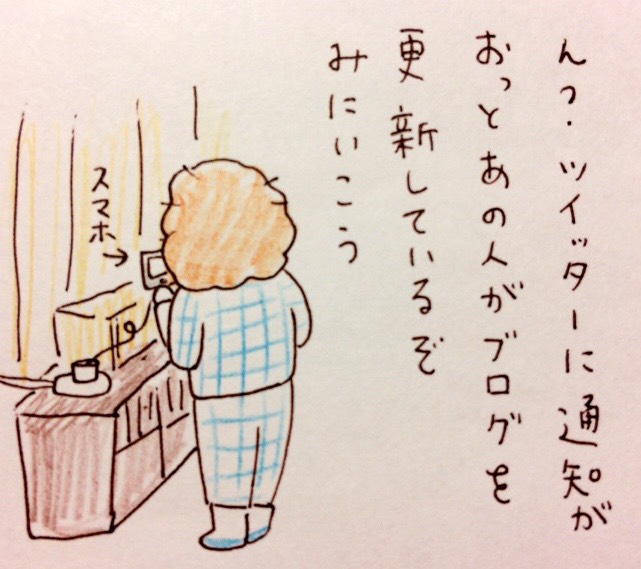 んっ・ツイッターに通知が
おっとあの人がブログを
更新しているぞ
みにいこう
スマホ→